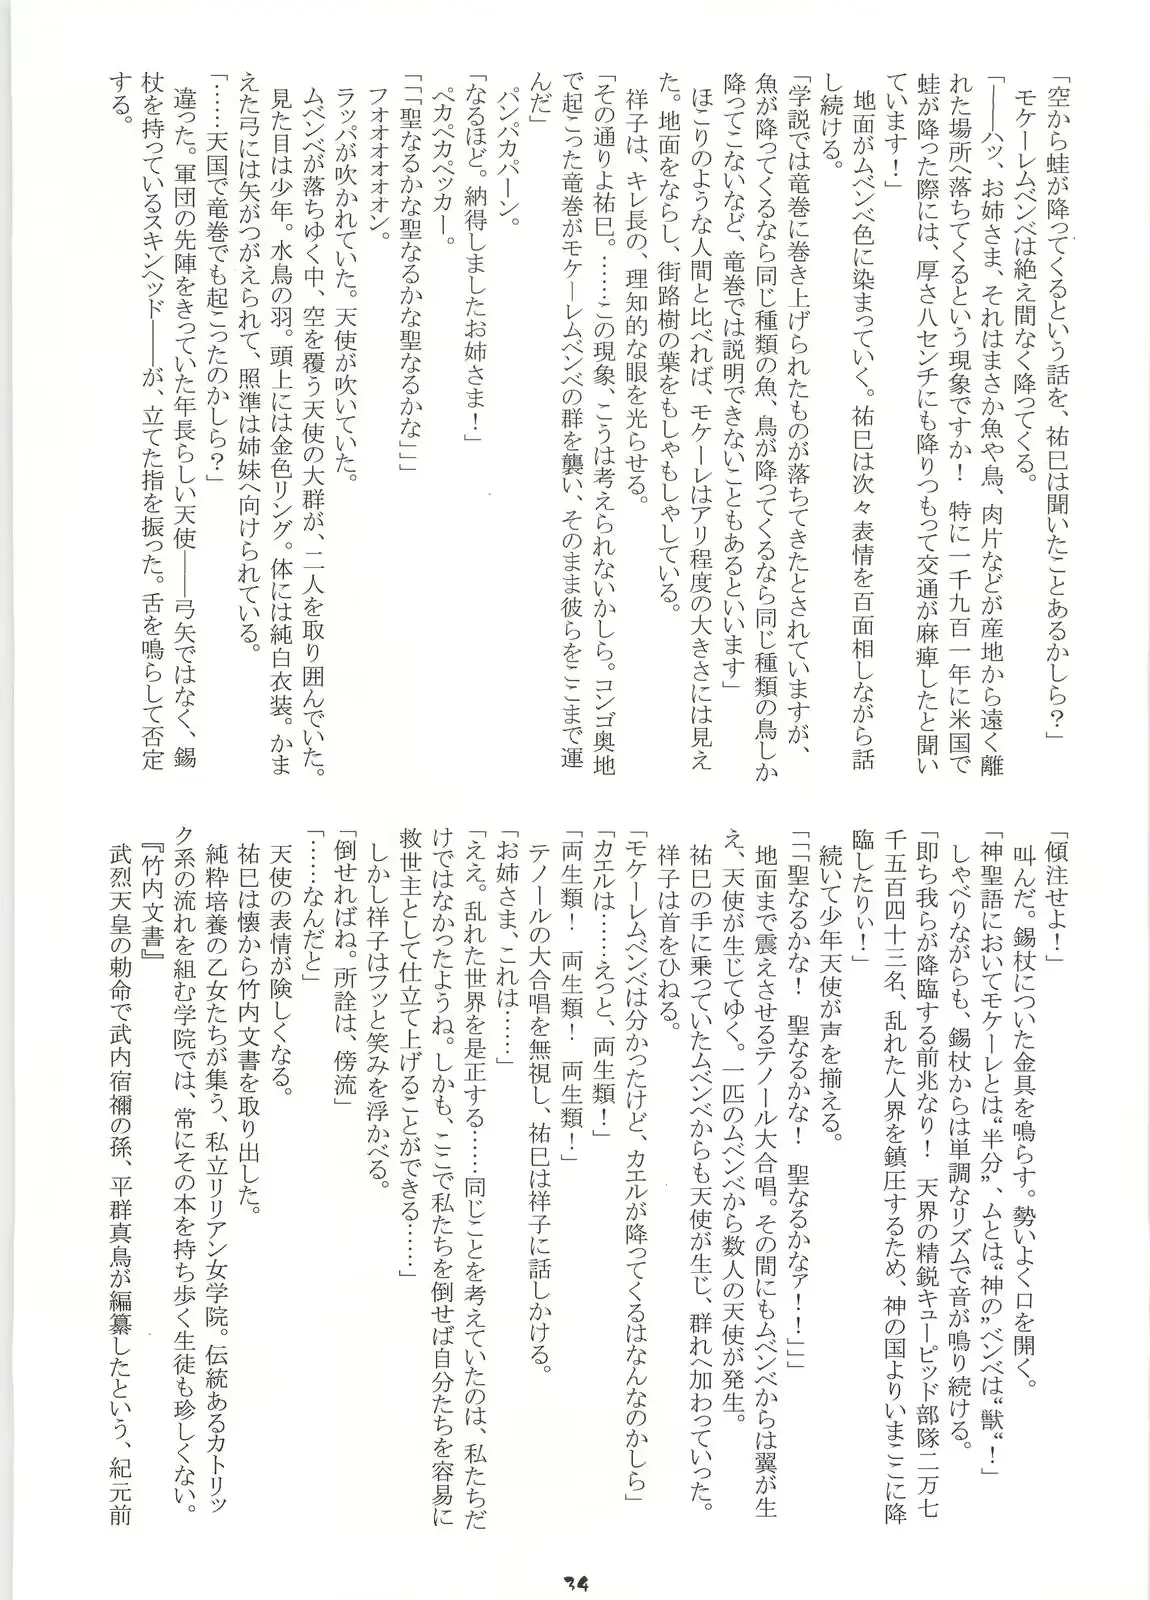 「空から蛙が降ってくるという話を、祐巳は聞いたことあるかしら？」
　モケーレムベンベは絶え間なく降ってくる。
「――ハッ、お姉さま、それはまさか魚や鳥、肉片などが産地から遠く離
れた場所へ落ちてくるという現象ですか！　特に一千九百一年に米国で
蛙が降った際には、厚さ八センチにも降りつもって交通が麻痺したと聞い
ています！」
　地面がムベンベ色に染まっていく。祐巳は次々表情を百面相しながら話
し続ける。
「学説では竜巻に巻き上げられたものが落ちてきたとされていますが、
魚が降ってくるなら同じ種類の魚、鳥が降ってくるなら同じ種類の鳥しか
降ってこないなど、竜巻では説明できないこともあるといいます」
　ほこりのような人間と比べれば、モケーレはアリ程度の大きさには見え
た。地面をならし、街路樹の葉をもしゃもしゃしている。
　祥子は、キレ長の、理知的な眼を光らせる。
「その通りよ祐巳。……この現象、こうは考えられないかしら。コンゴ奥地
で起こった竜巻がモケーレムベンベの群を襲い、そのまま彼らをここまで運
んだ」
　パンパカパーン。
「なるほど。納得しましたお姉さま！」
　ペカペカペッカー。
「「「聖なるかな聖なるかな聖なるかな」」」
　フォオオオオオン。
　ラッパが吹かれていた。天使が吹いていた。
　ムベンベが落ちゆく中、空を覆う天使の大群が、二人を取り囲んでいた。
　見た目は少年。水鳥の羽。頭上には金色リング。体には純白衣装。かま
えた弓には矢がつがえられて、照準は姉妹へ向けられている。
「……天国で竜巻でも起こったのかしら？」
　違った。軍団の先陣をきっていた年長らしい天使――弓矢ではなく、錫
杖を持っているスキンヘッド――が、立てた指を振った。舌を鳴らして否定
する。
「傾注せよ！」
　叫んだ。錫杖についた金具を鳴らす。勢いよく口を開く。
「神聖語においてモケーレとは“半分”、ムとは“神の”ベンベは“獣“！」
　しゃべりながらも、錫杖からは単調なリズムで音が鳴り続ける。
「即ち我らが降臨する前兆なり！　天界の精鋭キューピッド部隊二万七
千五百四十三名、乱れた人界を鎮圧するため、神の国よりいまここに降
臨したりぃ！」
　続いて少年天使が声を揃える。
「「「聖なるかな！　聖なるかな！　聖なるかなァ！！」」」
　地面まで震えさせるテノール大合唱。その間にもムベンベからは翼が生
え、天使が生じてゆく。一匹のムベンベから数人の天使が発生。
　祐巳の手に乗っていたムベンベからも天使が生じ、群れへ加わっていった。
　祥子は首をひねる。
「モケーレムベンベは分かったけど、カエルが降ってくるはなんなのかしら」
「カエルは……えっと、両生類！」
「両生類！　両生類！　両生類！」
　テノールの大合唱を無視し、祐巳は祥子に話しかける。
「お姉さま、これは……」
「ええ。乱れた世界を是正する……同じことを考えていたのは、私たちだ
けではなかったようね。しかも、ここで私たちを倒せば自分たちを容易に
救世主として仕立て上げることができる……」
　しかし祥子はフッと笑みを浮かべる。
「倒せればね。所詮は、傍流」
「……なんだと」
　天使の表情が険しくなる。
　祐巳は懐から竹内文書を取り出した。
　純粋培養の乙女たちが集う、私立リリアン女学院。伝統あるカトリッ
ク系の流れを組む学院では、常にその本を持ち歩く生徒も珍しくない。
　『竹内文書』
　武烈天皇の勅命で武内宿禰の孫、平群真鳥が編纂したという、紀元前
34